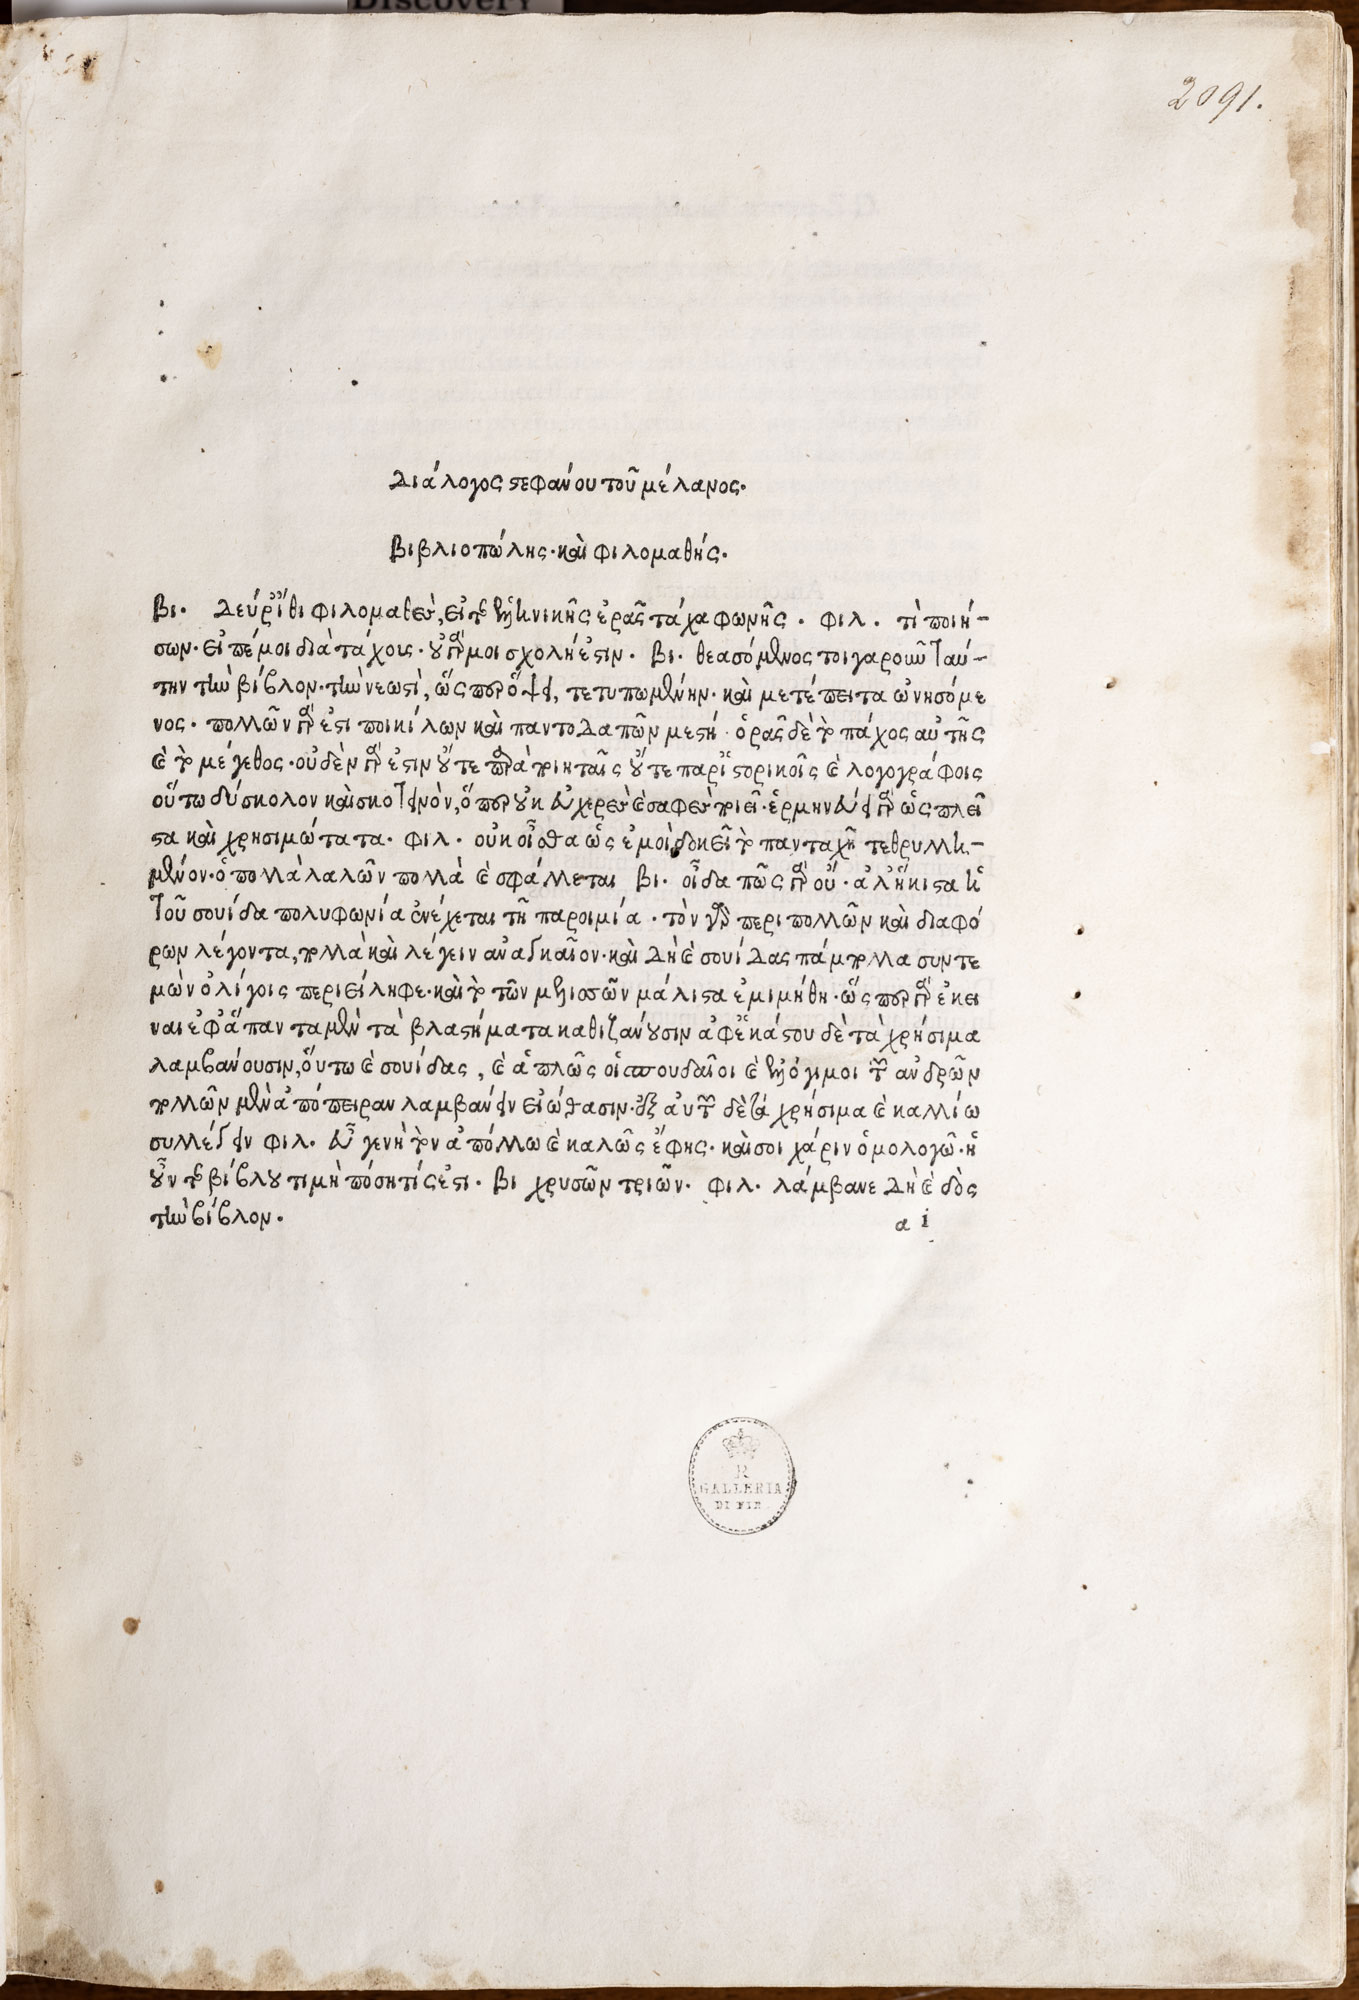 Discovery
2091.
Διάλογος στεφάνου τοῦ μέλανος.
Βιβλιοπώλης. καὶ φιλομαθής.
Βι. Δεῦρ' ἴθι φιλομαθὲς, εἰ τῆς ἑλληνικῆς ἐρᾷς τάχα φωνῆς. Φιλ. τί ποιή-
σων. εἰπέ μοι διὰ τάχους. οὐ γάρ μοι σχολή ἐστιν. Βι. θεασόμενος τοιγαροῦν ταύ-
την τὴν βίβλον. τὴν νεωστὶ, ὥσπερ ὄψει, τετυπωμένην. καὶ μετέπειτα ὠνησόμε
νος. πολλῶν γάρ ἐστι ποικίλων καὶ παντοδαπῶν μεστή. ὁρᾷς δὲ τὸ πάχος αὐτῆς
καὶ τὸ μέγεθος. οὐδὲν γάρ ἐστιν οὔτε παρὰ ποιηταῖς οὔτε παρ' ἱστορικοῖς καὶ λογογράφοις
οὕτω δύσκολον καὶ σκοτεινὸν, ὅπερ οὐκ εὐχερὲς καὶ σαφὲς ποιεῖ. ἑρμηνεύει γὰρ ὡς πλεῖ
στα καὶ χρησιμώτατα. Φιλ. οὐκ οἶσθα ὡς ἐμοὶ δοκεῖ τὸ πανταχῆ τεθρυλλη-
μένον. ὁ πολλὰ λαλῶν πολλὰ καὶ σφάλλεται Βι. οἶδα πῶς γὰρ οὔ. ἀλλ' ἥκιστα ἡ
τοῦ σουίδα πολυφωνία ἐνέχεται τῇ παροιμίᾳ. τὸν γὰρ περὶ πολλῶν καὶ διαφό
ρων λέγοντα, πολλὰ καὶ λέγειν ἀναγκαῖον. καὶ δὴ καὶ σουίδας πάμπολλα συντε
μὼν ὀλίγοις περιείληφε. καὶ τὸ τῶν μελισσῶν μάλιστα ἐμιμήθη. ὥσπερ γὰρ ἐκεῖ
ναι ἐφ' ἅπαντα μὲν τὰ βλαστήματα καθιζάνουσιν ἀφ' ἑκάστου δὲ τὰ χρήσιμα
λαμβάνουσιν, οὕτω καὶ σουίδας, καὶ ἁπλῶς οἱ σπουδαῖοι καὶ ἐλλόγιμοι τῶν ἀνδρῶν
πολλῶν μὲν ἀπόπειραν λαμβάνειν εἰώθασιν. ἐξ αὐτῶν δὲ τὰ χρήσιμα καὶ καλλίω
συλλέγειν Φιλ. εὖ γε νὴ τὸν ἀπόλλω καὶ καλῶς ἔφης. καί σοι χάριν ὁμολογῶ. ἡ
οὖν τοῦ βίβλου τιμὴ πόση τίς ἐστι. Βι χρυσῶν τριῶν. Φιλ. λάμβανε δὴ καὶ δὸς
τὴν βίβλον.
α i
R
GALLERIA
DI FIR